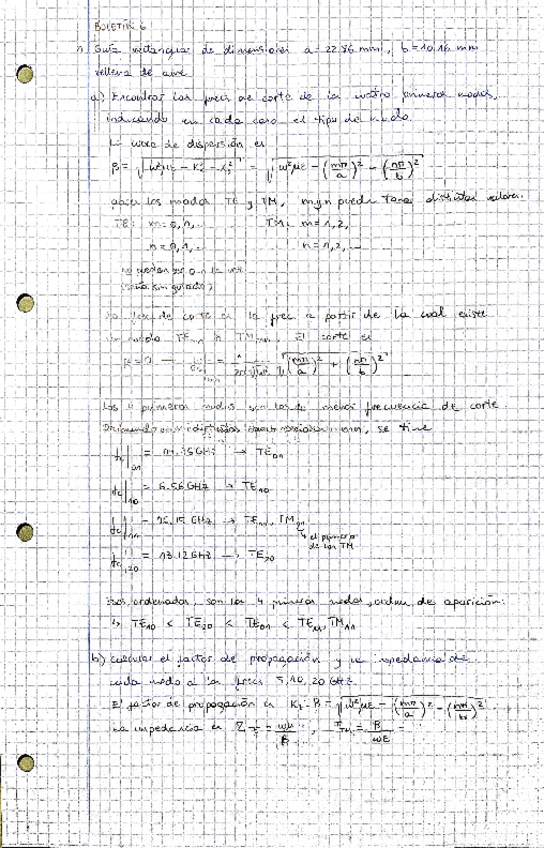 BOLETÍN 6
1. Guía rectangular de dimensiones a = 22.86 mm, b = 10.16 mm
rellena de aire
a) Encontrar las frec de corte de los cuatro primeros modos,
indicando en cada caso el tipo de modo.
La de dispersión es
β = √(ω²με - = √(ω²με - (mπ/a)² - (nπ/b)²)
los modos TE y TM, m y n puede tomar distintos valores.
TE: m = 0, 1, .. TM: m = 1, 2,
n = 0, 1, .. n = 1, 2, ...
no pueden ser 0 a la vez
La frec de corte es la frec a partir de la cual existe
un modo TEmn o TMmn. El corte es
β = 0 → √((mπ/a)² + (nπ/b)²)
Los 4 primeros modos son los de menor frecuencia de corte.
se tiene
fc|01 = 14.75 GHz → TE01
fc|10 = 6.56 GHz → TE10
fc|11 = 16.15 GHz → TE11, TM11
↳ el primero
de los TM
fc|20 = 13.12 GHz → TE20
ordenados, son los 4 primeros modos, orden de aparición:
↳ TE10 < TE20 < TE01 < TE11, TM11
b) Calcular el factor de propagación y la impedancia de
cada modo a las frecs 5, 10, 20 GHz.
El factor de propagación es β = √(ω²με - (mπ/a)² - (nπ/b)²)
La impedancia es Z = ωμ/β , = β/ωε